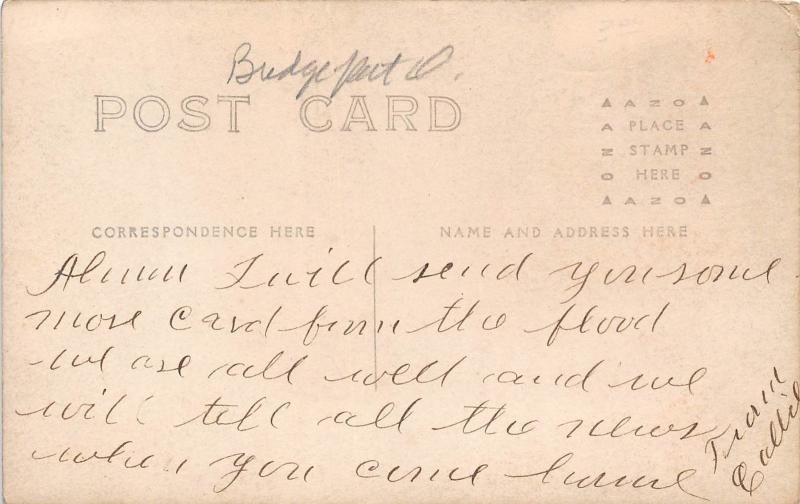 Bridgeport O.
POST CARD
AZO
PLACE
STAMP
HERE
AZO
CORRESPONDENCE HERE
NAME AND ADDRESS HERE
I will send you some
more card from the flood
we are all well and we
will tell all the news
when you come home
From
Callie